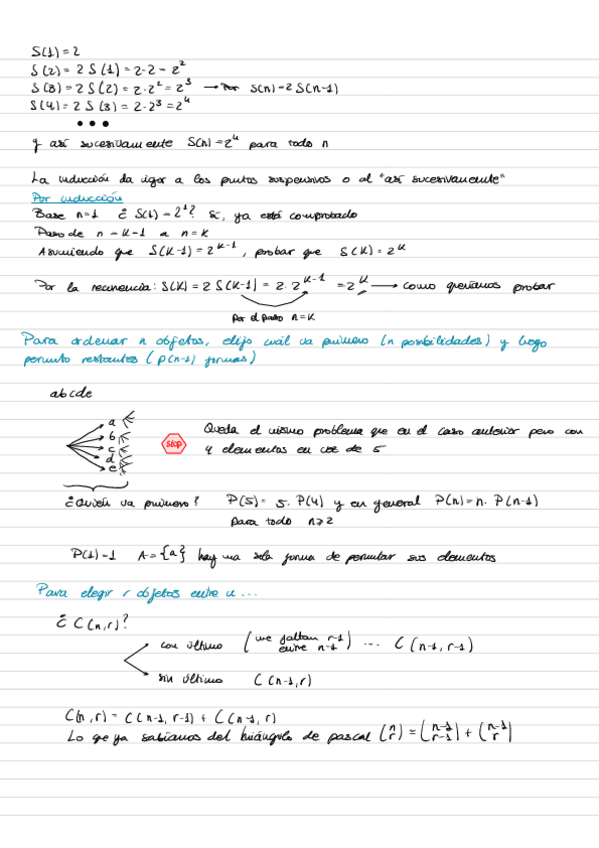 S(1) = 2
S(2) = 2 S(1) = 2·2 = 2²
S(3) = 2 S(2) = 2·2² = 2³ → S(n) = 2 S(n-1)
S(4) = 2 S(3) = 2·2³ = 2⁴
• • •
y así sucesivamente S(n) = 2ⁿ para todo n
La inducción da rigor a los puntos suspensivos o al "así sucesivamente"
Por inducción
Base n=1 ¿ S(1) = 2¹? Sí, ya está comprobado
Paso de n = k-1 a n = k
Asumiendo que S(k-1) = 2^(k-1), probar que S(k) = 2^k
Por la recurrencia: S(k) = 2 S(k-1) = 2·2^(k-1) = 2^k → como queríamos probar
por el paso n=k
Para ordenar n objetos, elijo cuál va primero (n posibilidades) y luego
permuto restantes (p(n-1) formas)
abcde
a
b
c
d
e
Stop
Queda el mismo problema que en el caso anterior pero con
4 elementos en vez de 5
¿Quién va primero? P(5) = 5·P(4) y en general P(n) = n·P(n-1)
para todo n≥2
P(1) = 1 A = {a} hay una sola forma de permutar sus elementos
Para elegir r objetos entre n ...
¿ C(n,r)?
con último (me faltan r-1 entre n-1) ... C(n-1, r-1)
sin último C(n-1, r)
C(n,r) = C(n-1, r-1) + C(n-1, r)
Lo que ya sabíamos del triángulo de pascal (n r) = (n-1 r-1) + (n-1 r)